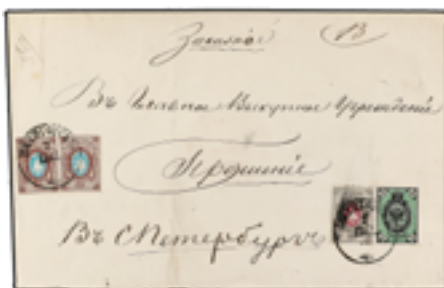 Заказное
Въ Главное Выкупное Учрежденіе
Прошеніе
Въ С Петербургъ